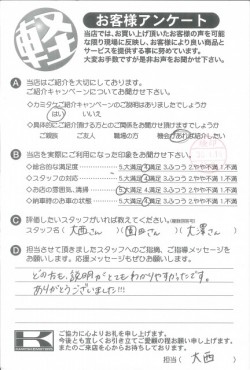 軽
お客様アンケート
当店では、お買い上げ頂いたお客様の声を可能
な限り現場に反映し、お客様により良い商品と
サービスを提供する事に努めています。
大変お手数ですが是非お声をお聞かせ下さい。
A 当店はご紹介を大切にしております。
ご紹介キャンペーンについてお聞かせ下さい。
はい いいえ
ご親戚 ご友人 職場の方 機会があれば紹介したい
B 当店を実際にご利用になった印象をお聞かせ下さい。
◇総合的な満足度 5.大満足 4.満足 3.ふつう 2.やや不満 1.不満
◇スタッフの対応 5.大満足 4.満足 3.ふつう 2.やや不満 1.不満
◇お店の雰囲気、清掃 5.大満足 4.満足 3.ふつう 2.やや不満 1.不満
◇納車時のお車の状態 5.大満足 4.満足 3.ふつう 2.やや不満 1.不満
C 評価したいスタッフがいれば教えてください。
スタッフ名 (大西さん) (園田さん) (大澤さん)
D 担当させて頂きましたスタッフへのご指摘、ご指導メッセージを
お願いします。応援メッセージもぜひお願いします。
どの方も、説明がとってもわかりやすかったです。
ありがとうございました!!!
K
ご協力に心よりお礼を申し上げます。
今後とも宜しくお引き立てご愛顧の程お願い申し上げます。
またのご来店を心からお待ちしております。
担当 (大西)